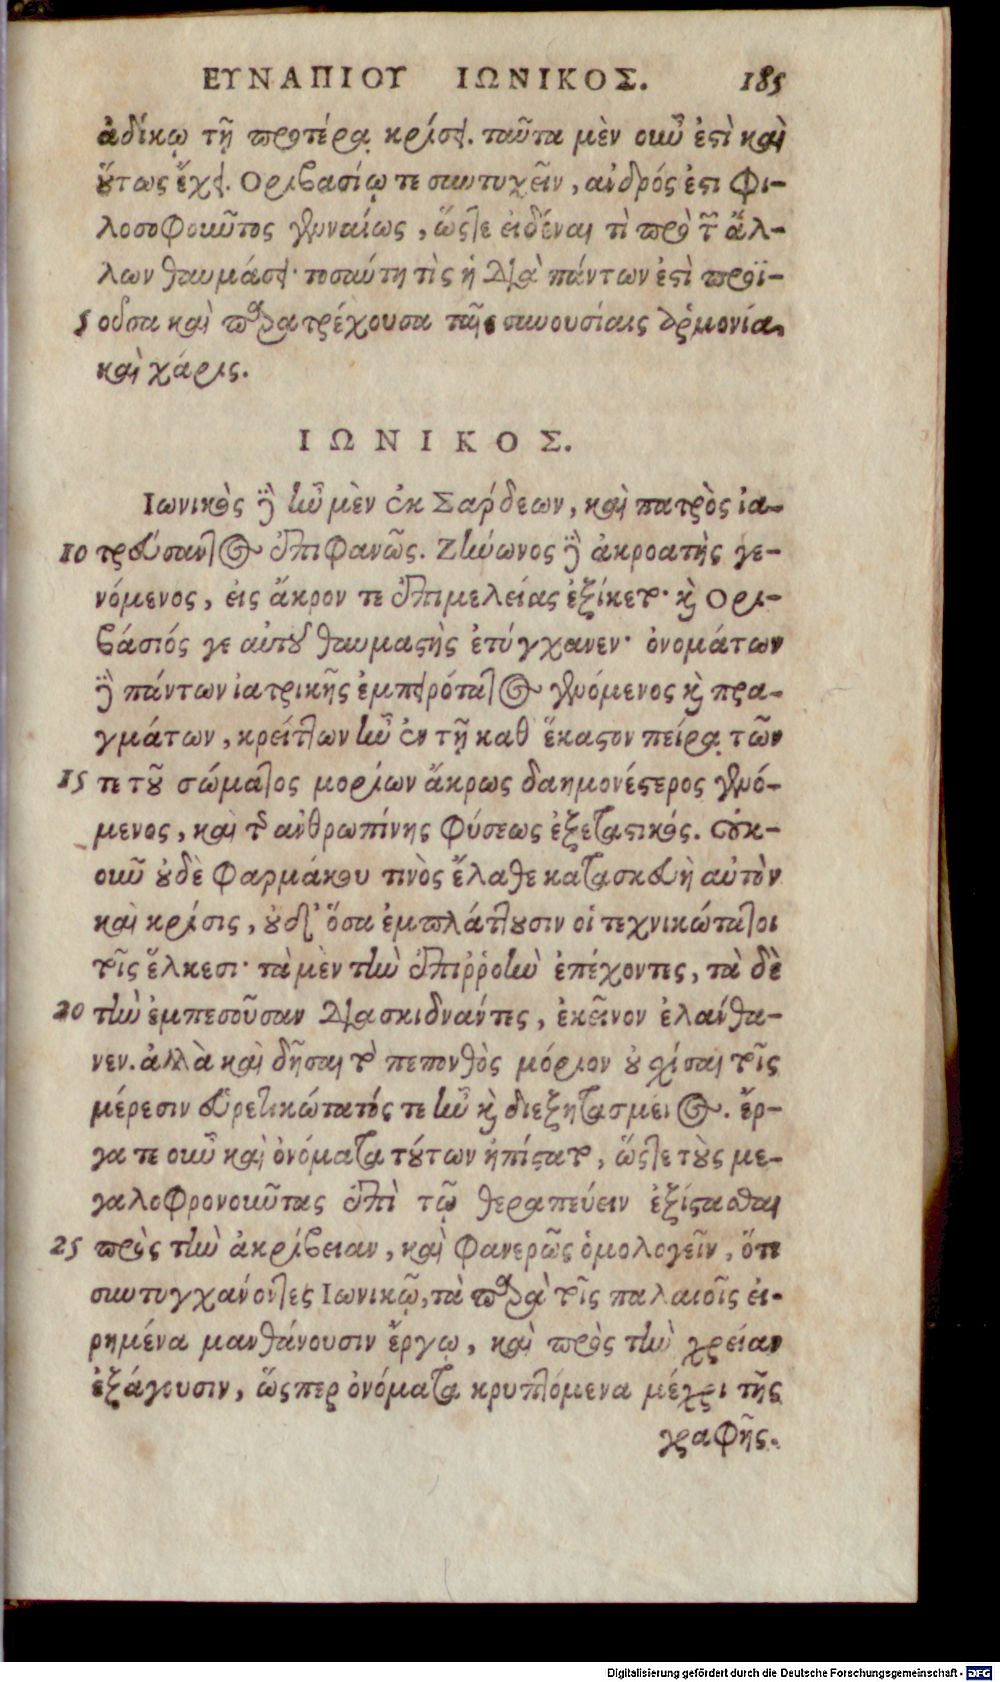 ΕΥΝΑΠΙΟΥ ΙΩΝΙΚΟΣ. 185
ἀδίκῳ τῇ προτέρᾳ κρίσει. ταῦτα μὲν οὖν ἐστὶ καὶ
οὕτως ἔχει. Ὀριβασίῳ τε συντυχεῖν, ἀνδρός ἐστι φι-
λοσοφοῦντος γενναίως, ὥστε εἰδέναι τί πρὸ τῶν ἄλ-
λων θαυμάσει· τοσαύτη τὶς ἡ διὰ πάντων ἐστὶ προϊ-
5 οῦσα καὶ παρατρέχουσα ταῖς συνουσίαις ἁρμονία,
καὶ χάρις.
ΙΩΝΙΚΟΣ.
Ἰωνικὸς δὲ ἦν μὲν ἐκ Σάρδεων, καὶ πατρὸς ἰα-
10 τρεύσαντος ἐπιφανῶς. Ζήνωνος δὲ ἀκροατὴς γε-
νόμενος, εἰς ἄκρον τε ἐπιμελείας ἐξίκετο· καὶ Ὀρι-
βάσιός γε αὐτοῦ θαυμαστὴς ἐτύγχανεν· ὀνομάτων
δὲ πάντων ἰατρικῆς ἐμπειρότατος γενόμενος καὶ πρα-
γμάτων, κρείττων ἦν ἐν τῇ καθ' ἕκαστον πείρᾳ τῶν
15 τε τοῦ σώματος μορίων ἄκρως δαημονέστερος γενό-
μενος, καὶ τῆς ἀνθρωπίνης φύσεως ἐξεταστικός. οὐκ-
οῦν οὐδὲ φαρμάκου τινὸς ἔλαθε κατασκευὴ αὐτὸν
καὶ κρίσις, οὐδ' ὅσα ἐμπλάττουσιν οἱ τεχνικώτατοι
τοῖς ἕλκεσι· τὰ μὲν τὴν ἐπιῤῥοὴν ἐπέχοντες, τὰ δὲ
20 τὴν ἐμπεσοῦσαν διασκιδνάντες, ἐκεῖνον ἐλάνθα-
νεν. ἀλλὰ καὶ δῆσαι τὸ πεπονθὸς μόριον οὐ χίσαι τοῖς
μέρεσιν εὑρετικώτατός τε ἦν καὶ διεξητασμένος. ἔρ-
γα τε οὖν καὶ ὀνόματα τούτων ἠπίστατο, ὥστε τοὺς με-
γαλοφρονοῦντας ἐπὶ τῷ θεραπεύειν ἐξίστασθαι
25 πρὸς τὴν ἀκρίβειαν, καὶ φανερῶς ὁμολογεῖν, ὅτι
συντυγχάνοντες Ἰωνικῷ, τὰ παρὰ τοῖς παλαιοῖς εἰ-
ρημένα μανθάνουσιν ἔργῳ, καὶ πρὸς τὴν χρείαν
ἐξάγουσιν, ὥσπερ ὀνόματα κρυπτόμενα μέχρι τῆς
γραφῆς.
Digitalisierung gefördert durch die Deutsche Forschungsgemeinschaft - DFG